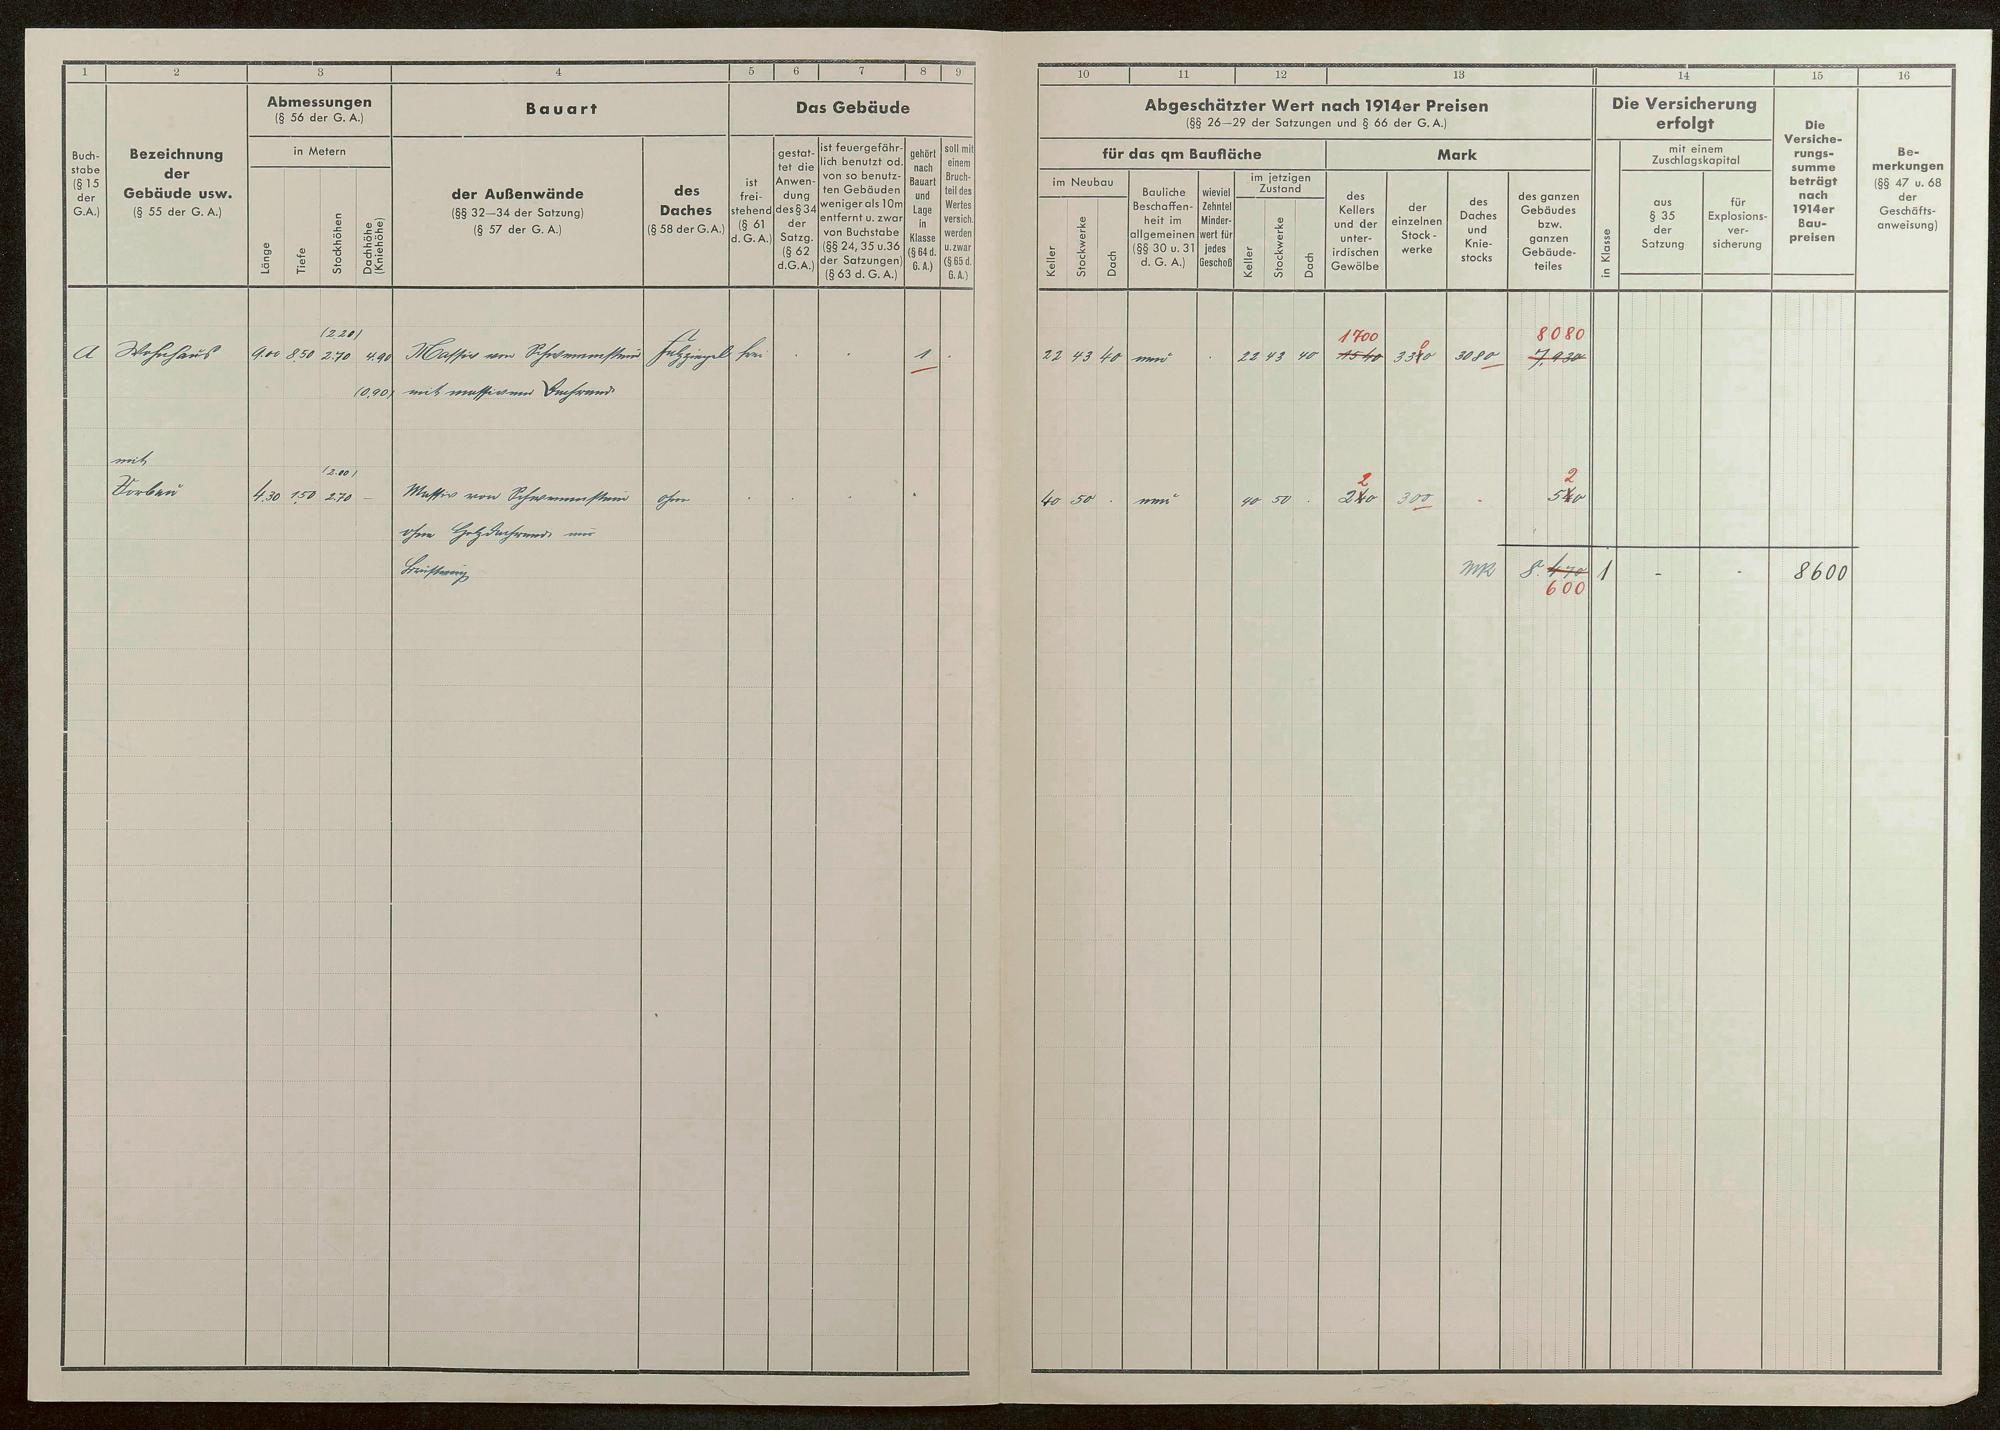 1 2 3 4 5 6 7 8 9
Buch-
stabe
(§ 15
der
G.A.)
Bezeichnung
der
Gebäude usw.
(§ 55 der G. A.)
Abmessungen
(§ 56 der G. A.)
in Metern
Länge
Tiefe
Stockhöhen
Dachhöhe
(Kniehöhe)
Bauart
der Außenwände
(§§ 32—34 der Satzung)
(§ 57 der G. A.)
des
Daches
(§ 58 der G. A.)
Das Gebäude
ist
frei-
stehend
(§ 61
d. G. A.)
gestat-
tet die
Anwen-
dung
des § 34
der
Satzg.
(§ 62
d.G.A.)
ist feuergefähr-
lich benutzt od.
von so benutz-
ten Gebäuden
weniger als 10m
entfernt u. zwar
von Buchstabe
(§§ 24, 35 u.36
der Satzungen)
(§ 63 d. G. A.)
gehört
nach
Bauart
und
Lage
in
Klasse
(§ 64 d.
G. A.)
soll mit
einem
Bruch-
teil des
Wertes
versich.
werden
u. zwar
(§ 65 d.
G. A.)
(2.20)
A Wohnhaus 9.00 8.50 2.70 4.90 Massiv von Schwemmstein Falzziegel frei . . 1 .
(0,90) mit massivem
mit
(2.00)
Vorbau 4.30 1.50 2.70 – Massiv von Schwemmstein ohne . . . .
ohne
10 11 12 13 14 15 16
Abgeschätzter Wert nach 1914er Preisen
(§§ 26—29 der Satzungen und § 66 der G. A.)
für das qm Baufläche
im Neubau
Keller
Stockwerke
Dach
Bauliche
Beschaffen-
heit im
allgemeinen
(§§ 30 u. 31
d. G. A.)
wieviel
Zehntel
Minder-
wert für
jedes
Geschoß
im jetzigen
Zustand
Keller
Stockwerke
Dach
Mark
des
Kellers
und der
unter-
irdischen
Gewölbe
der
einzelnen
Stock-
werke
des
Daches
und
Knie-
stocks
des ganzen
Gebäudes
bzw.
ganzen
Gebäude-
teiles
Die Versicherung
erfolgt
in Klasse
mit einem
Zuschlagskapital
aus
§ 35
der
Satzung
für
Explosions-
ver-
sicherung
Die
Versiche-
rungs-
summe
beträgt
nach
1914er
Bau-
preisen
Be-
merkungen
(§§ 47 u. 68
der
Geschäfts-
anweisung)
1700 8080
22 43 40 neu . 22 43 40 1540 3300 3080 7,930
2 2
40 50 . neu 40 50 . 240 300 - 540
MK 8.470 1 - - 8600
600